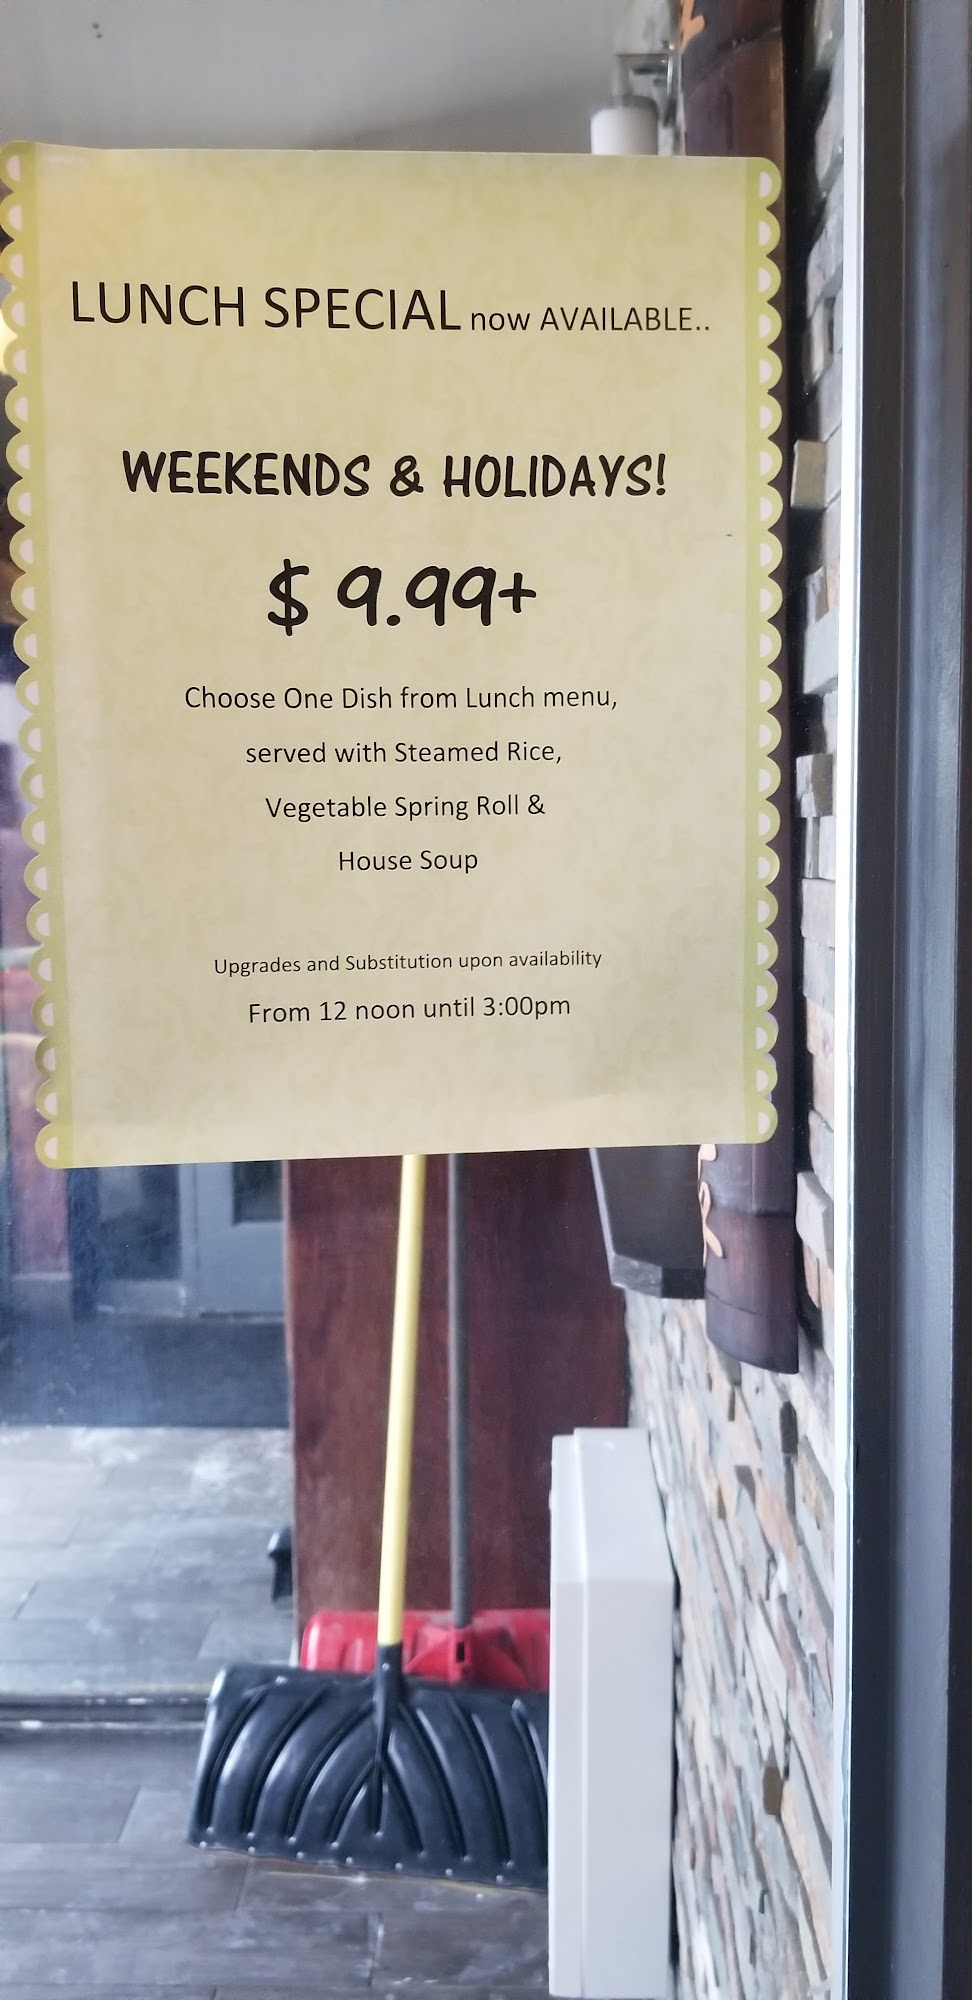 LUNCH SPECIAL now AVAILABLE..
WEEKENDS & HOLIDAYS!
$ 9.99+
Choose One Dish from Lunch menu,
served with Steamed Rice,
Vegetable Spring Roll &
House Soup
Upgrades and Substitution upon availability
From 12 noon until 3:00pm